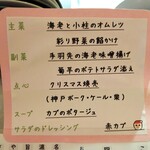 主菜 海老と小柱のオムレツ
彩り野菜の餡かけ
副菜 手羽先の海老味噌揚げ
菊芋のポテトサラダ添え
点心 クリスマス焼売
(神戸ポーク・ケール・栗)
スープ カブのポタージュ
サラダのドレッシング 赤カブ